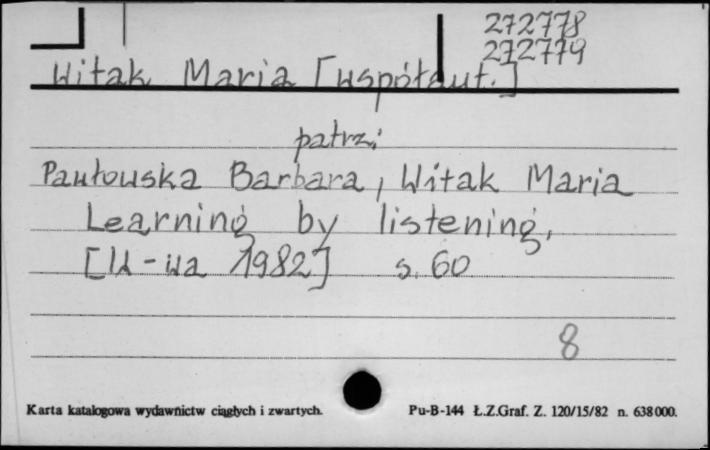 272778
272779
Witak Maria [współaut.]
patrz:
Pawłowska Barbara, Witak Maria
Learning by listening,
[W-wa 1982] s. 60
8
Karta katalogowa wydawnictw ciągłych i zwartych. Pu-B-144 Ł.Z.Graf. Z. 120/15/82 n. 638000.